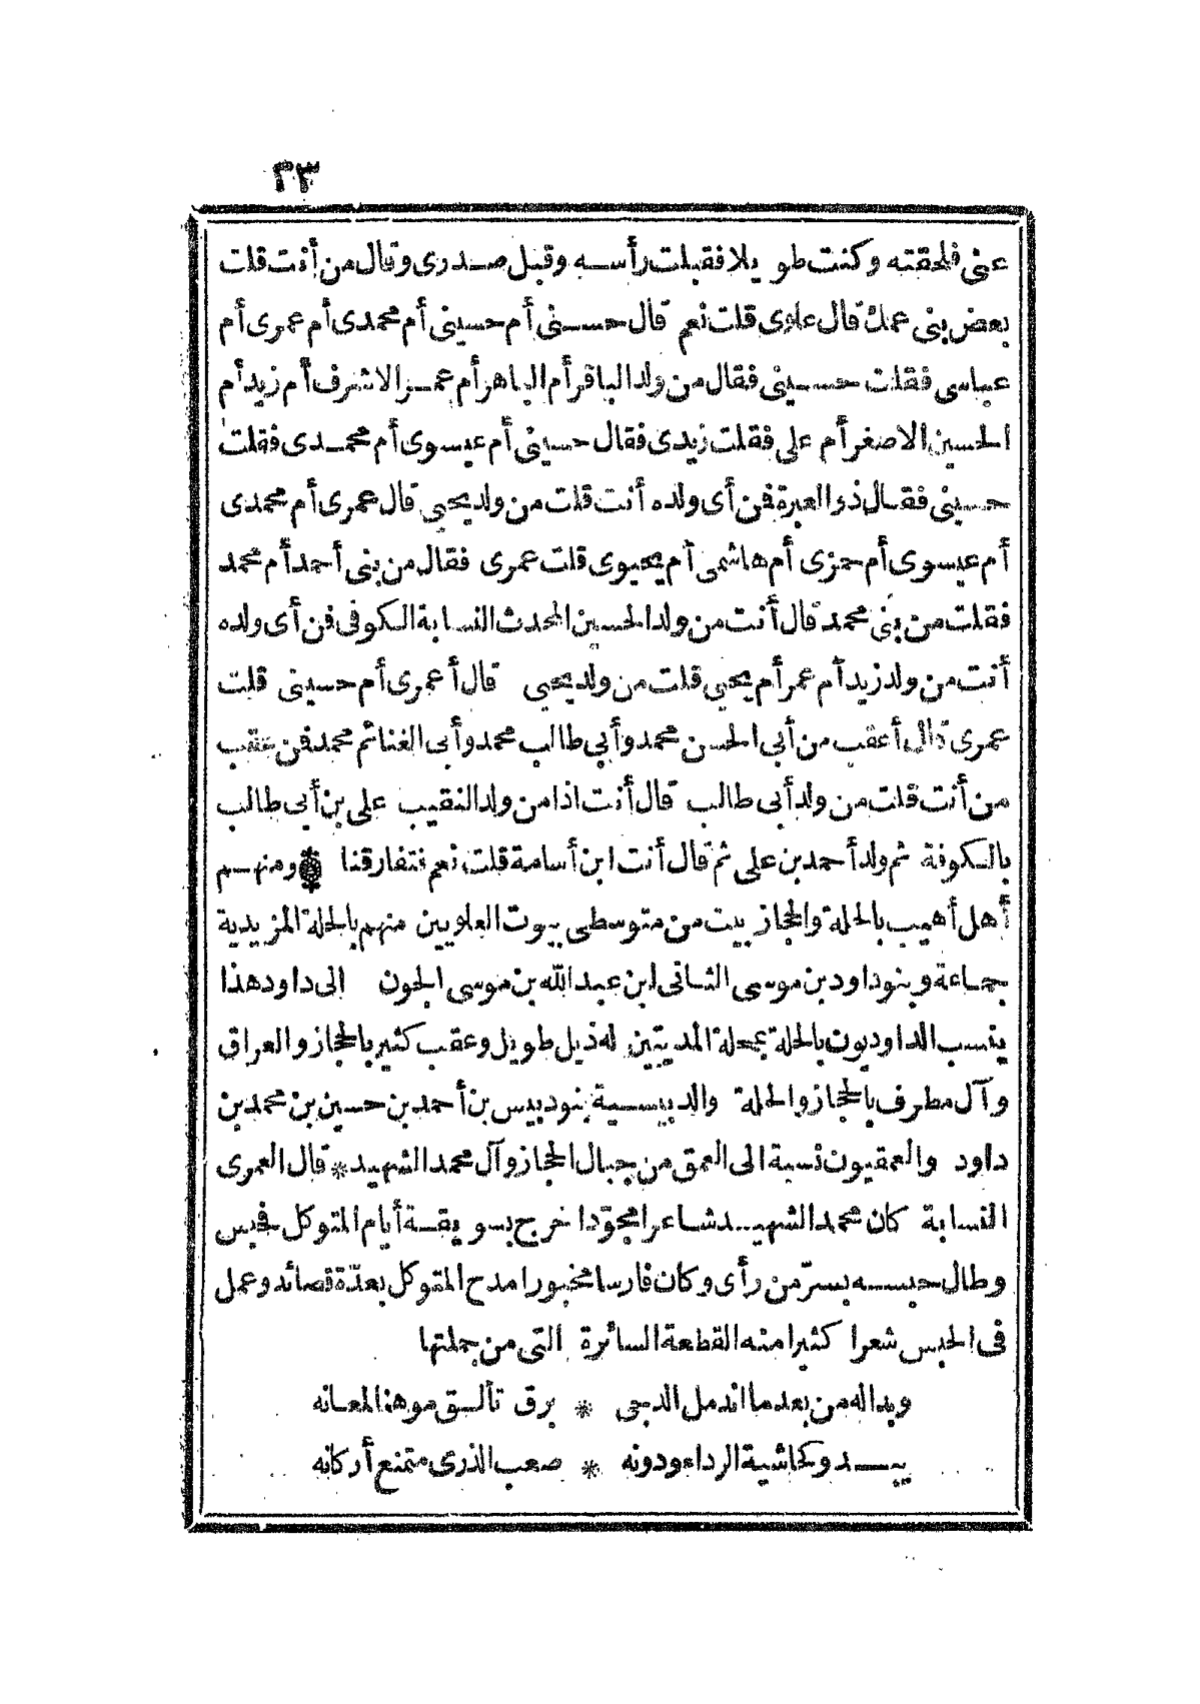 ٢٣
عنى فلحقته وكنت طويلا فقبلت رأسه وقبل صدرى وقال من أنت قلت
بعض بنى عمك قال علوى قلت نعم قال حسنى أم حسينى أم محمدى أم عمرى أم
عباسى فقلت حسينى فقال من ولد الباقر أم الباهر أم عمر الاشرف أم زيد أم
الحسين الاصغر أم على فقلت زيدى فقال حسينى أم عيسوى أم محمدى فقلت
حسينى فقال ذو العبرة فمن أى ولده أنت قلت من ولد يحيى قال عمرى أم محمدى
أم عيسوى أم حمزى أم هاشمى أم يحيوى قلت عمرى فقال من بنى أحمد أم محمد
فقلت من بنى محمد قال أنت من ولد الحسين المحدث النسابة الكوفى فمن أى ولده
أنت من ولد زيد أم عمر أم يحيى قلت من ولد يحيى قال أعمرى أم حسينى قلت
عمرى قال أعقب من أبى الحسن محمد وأبى طالب محمد وأبى الغنائم محمد فمن عقب
من أنت قلت من ولد أبى طالب قال أنت اذا من ولد النقيب على بن أبى طالب
بالكوفة ثم ولد أحمد بن على ثم قال أنت ابن أسامة قلت نعم نتفارقنا ومنهم
أهل أهيب بالحلة والحجاز بيت من متوسطى بيوت العلويين منهم بالحلة المزيدية
جماعة وبنو داود بن موسى الثانى ابن عبد الله بن موسى الجون الى داود هذا
ينسب الداوديون بالحلة بمحلة المديتين له ذيل طويل وعقب كثير بالحجاز والعراق
وآل مطرف بالحجاز والحلة والدبيسية بنو دبيس بن أحمد بن حسين بن محمد بن
داود والعمقيون نسبة الى العمق من جبال الحجاز وآل محمد الشهيد * قال العمرى
النسابة كان محمد الشهيد شاعرا مجوّدا خرج بسويقة أيام المتوكل فحبس
وطال حبسه بسرّ من رأى وكان فارسا مخبورا مدح المتوكل بعدّة قصائد وعمل
فى الحبس شعرا كثيرا منه القطعة السائرة التى من جملتها
وبدا له من بعد ما اندمل الدجى * برق تألق موهنا لمعانه
يبدو كحاشية الرداء ودونه * صعب الذرى متمنع أركانه